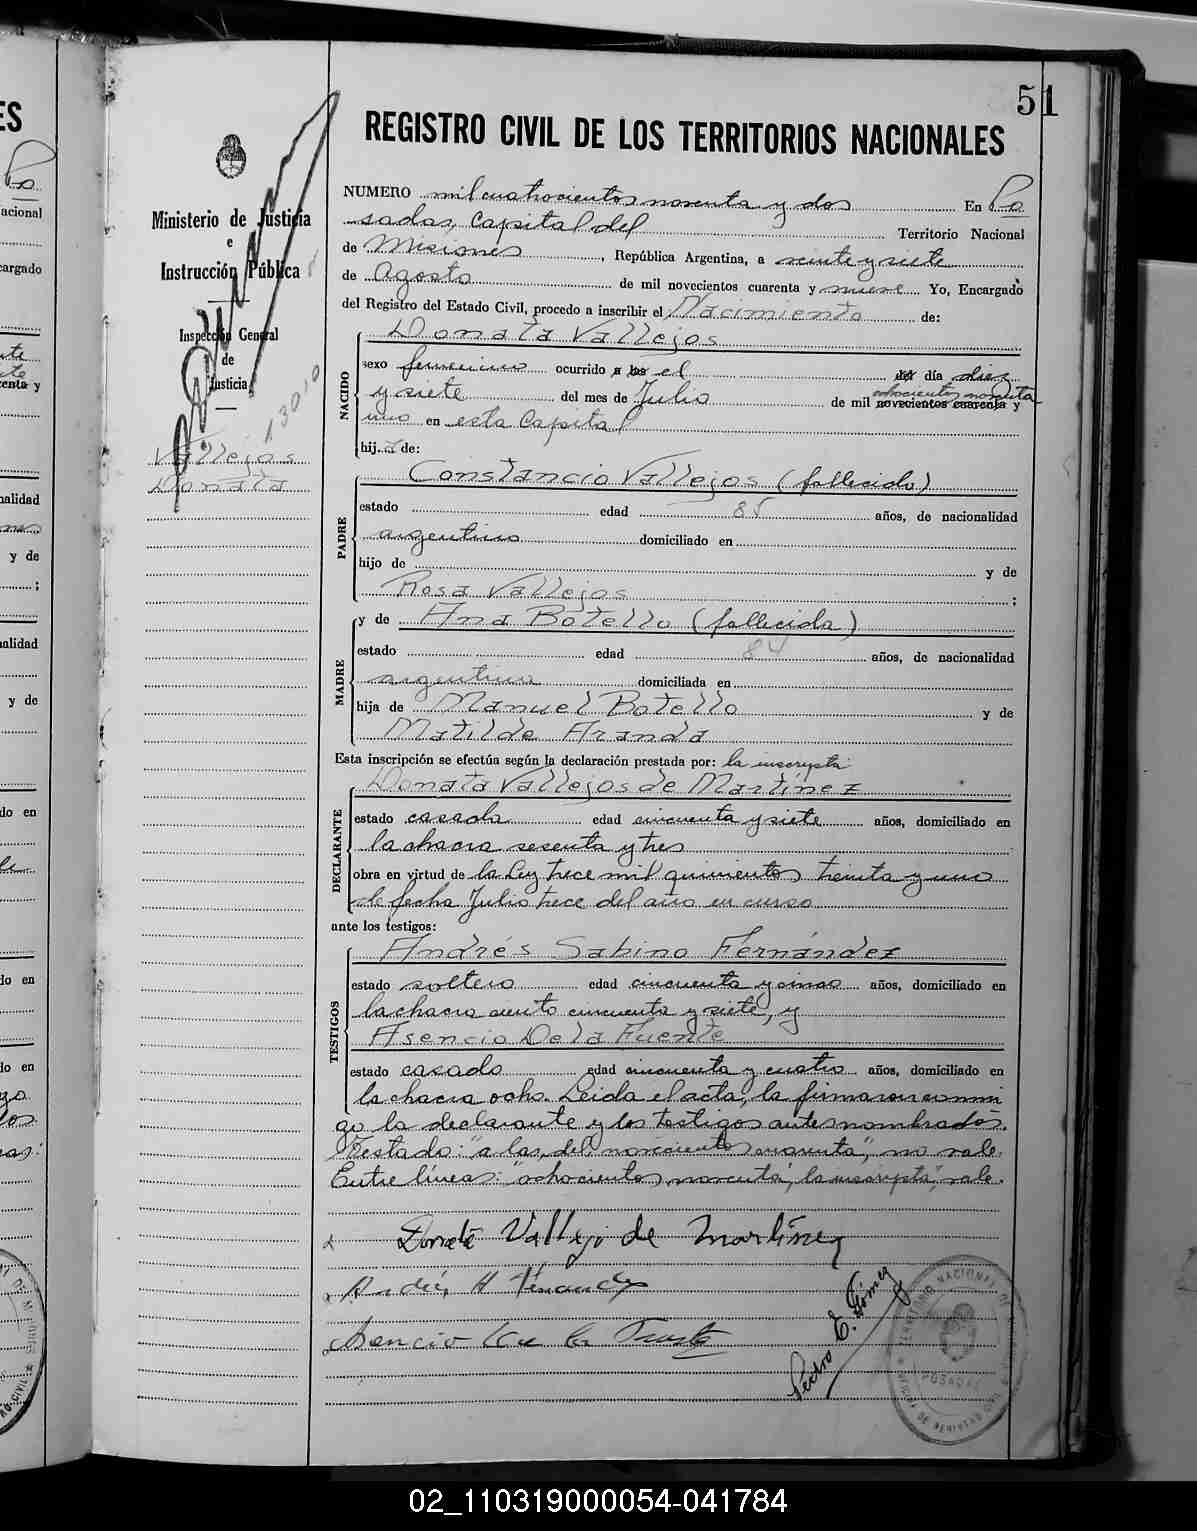 51
REGISTRO CIVIL DE LOS TERRITORIOS NACIONALES
Ministerio de Justicia
e
Instrucción Pública
Inspección General
de
Justicia
13010
Vallejos
Donata
NUMERO mil cuatrocientos noventa y dos En Po
sadas, Capital del Territorio Nacional
de Misiones, República Argentina, a veinte y siete
de Agosto de mil novecientos cuarenta y nueve Yo, Encargado
del Registro del Estado Civil, procedo a inscribir el Nacimiento de:
NACIDO
Donata Vallejos
sexo femenino ocurrido a las el del día diez
ochocientos noventa
y siete del mes de Julio de mil novecientos cuarenta y
uno en esta Capital
hij a de:
PADRE
Constancio Vallejos (fallecido)
estado edad 85 años, de nacionalidad
argentino domiciliado en
hijo de y de
Rosa Vallejos ;
MADRE
y de Ana Botello (fallecida)
estado edad 84 años, de nacionalidad
argentina domiciliada en
hija de Manuel Botello y de
Matilde Aranda
Esta inscripción se efectúa según la declaración prestada por: la inscripta
DECLARANTE
Donata Vallejos de Martínez
estado casada edad cincuenta y siete años, domiciliado en
la chacra sesenta y tres
obra en virtud de la Ley trece mil quinientos treinta y uno
de fecha Julio trece del año en curso
ante los testigos:
TESTIGOS
Andrés Sabino Fernández
estado soltero edad cincuenta y cinco años, domiciliado en
la chacra ciento cincuenta y siete, y
Asencio De la Fuente
estado casado edad cincuenta y cuatro años, domiciliado en
la chacra ocho. Leida el acta, la firmaron conmi
go la declarante y los testigos antes nombrados.
Testado: "a las, del, novecientos cuarenta", no vale.
Entre líneas: "ochocientos noventa", la inscripta", vale.
Donata Vallejo de Martinez
Andrés Fernandez
Asencio de la Fuente
Pedro E. Gómez
TERRITORIO NACIONAL DE MISIONES
POSADAS
OFICINA DE REGISTRO CIVIL
02_110319000054-041784